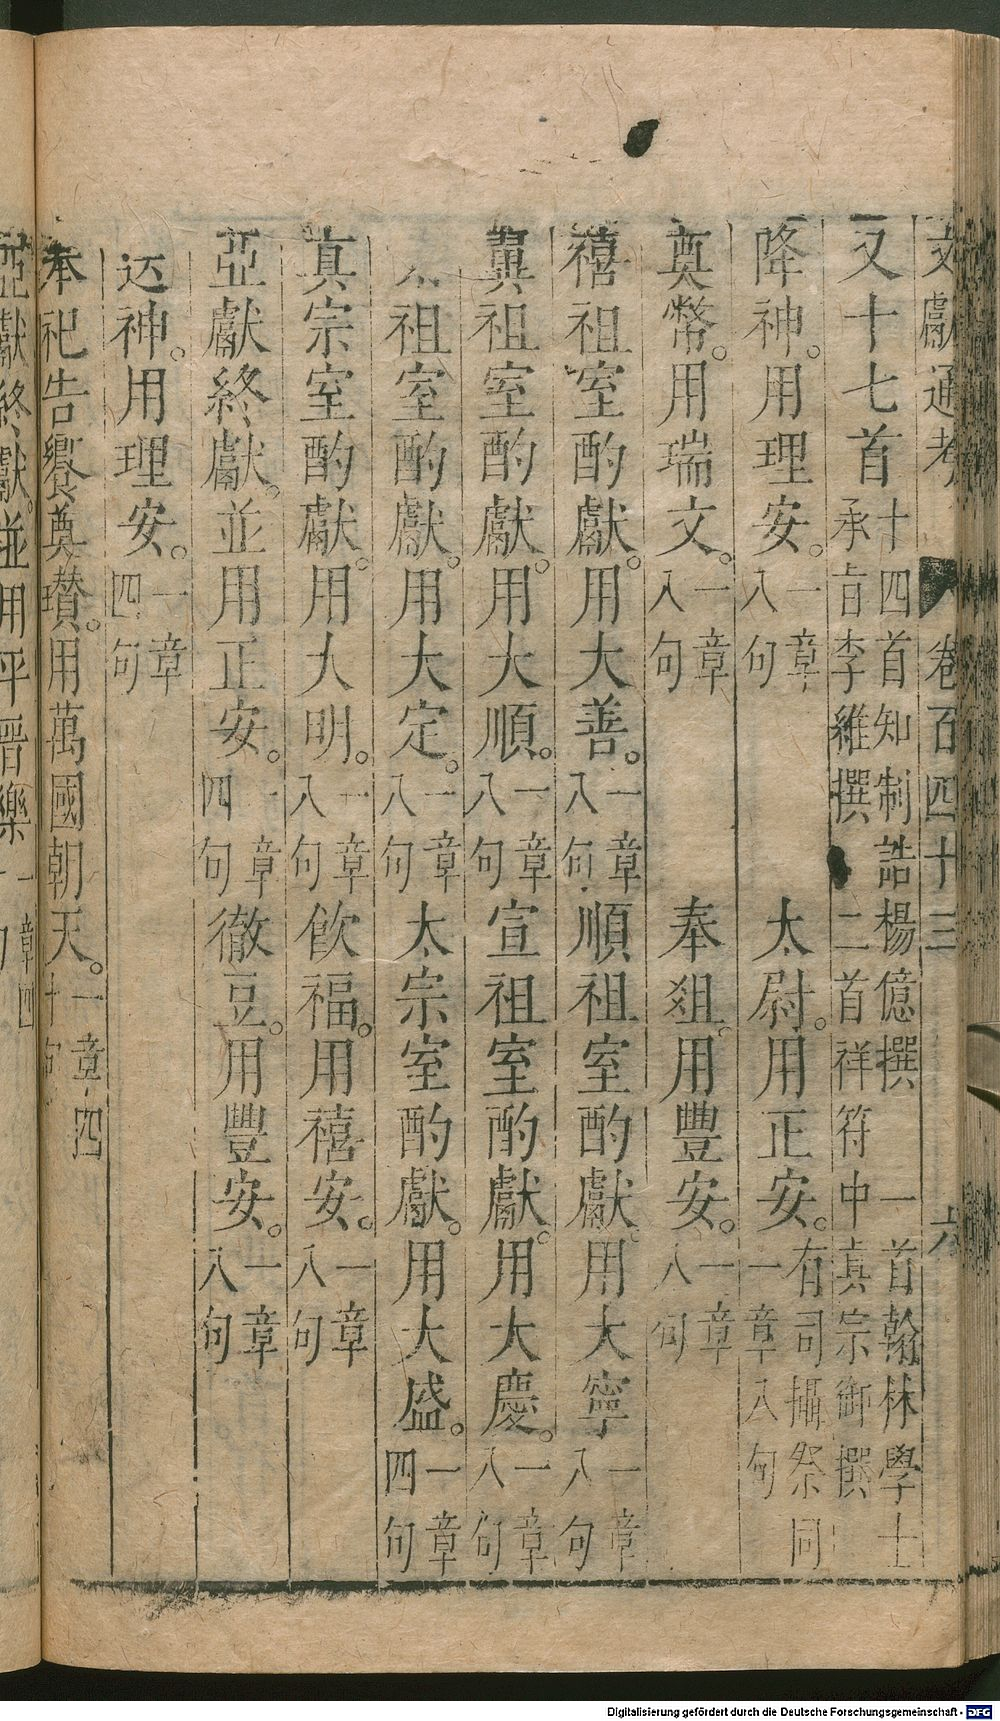 文獻通考 卷百四十三 六
又十七首 十四首知制誥楊億撰 一首翰林學士
承旨李維撰 二首祥符中真宗御撰
降神。用理安。一章八句 太尉。用正安。有司攝祭同一章八句
奠幣。用瑞文。一章八句 奉俎。用豐安。一章八句
禧祖室酌獻。用大善。一章八句 順祖室酌獻。用大寧一章八句
翼祖室酌獻。用大順。一章八句 宣祖室酌獻。用大慶。一章八句
太祖室酌獻。用大定。一章八句 太宗室酌獻。用大盛。一章四句
真宗室酌獻。用大明。一章八句 飲福。用禧安。一章八句
亞獻終獻。並用正安。一章四句 徹豆。用豐安。一章八句
送神。用理安。一章四句
奉祀告饗奠瓚。用萬國朝天。一章四十句
亞獻終獻。並用平晉樂一章四句
Digitalisierung gefördert durch die Deutsche Forschungsgemeinschaft - DFG